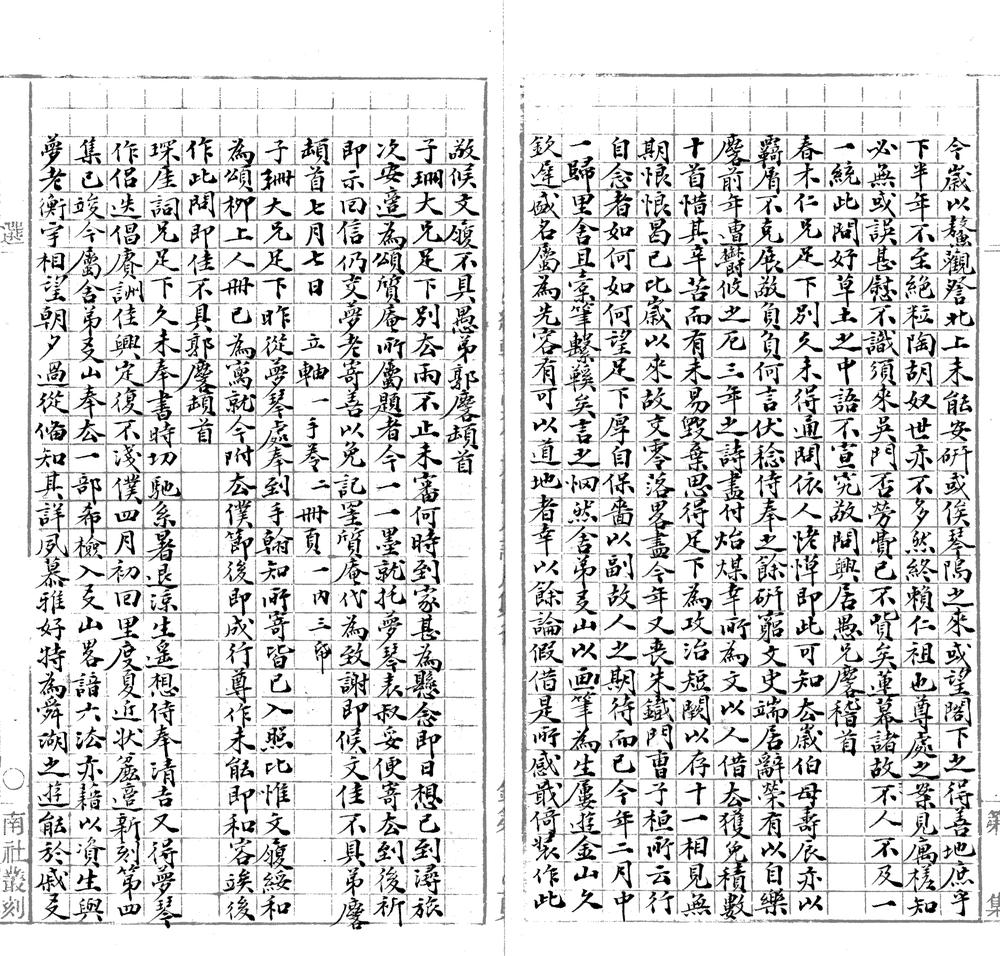 今歲以鰲觀登北上未能安硏或俟琴隖之來或望閣下之得善地庶乎
下半年不至絕粒陶胡奴世亦不多然終賴仁祖也尊處之案見厲槎知
必無或誤甚慰不識須來吳門否勞費已不貲矣蓮幕諸故不人不及一
一統此問好草土之中語不宣究敬問興居愚兄麐稽首
春木仁兄足下別久未得通問依人恅愺即此可知去歲伯母壽辰亦以
羇屑不克展敬負負何言伏稔侍奉之餘硏窮文史端居辭榮有以自樂
麐前年遭鬱攸之厄三年之詩盡付炲煤幸所為文以人借去獲免積數
十首惜其辛苦而有未易毀棄思得足下為攻治短闕以存十一相見無
期悵悵曷已比歲以來故交零落畧盡今年又喪朱鐵門曹子桓所云行
自念者如何如何望足下厚自保嗇以副故人之期待而已今年二月中
一歸里舍且槖筆繫鞵矣言之惘然舍弟叐山以画筆為生屢遊金山久
欽遲盛名屬為先容有可以道地者幸以餘論假借是所感戢倚裝作此
敬候文履不具愚弟郭麐頓首
子珊大兄足下別去雨不止未審何時到家甚為懸念即日想已到潯旅
次安䆠為頌質庵所屬題者今一一墨就托夢琴表叔妥便寄去到後祈
即示回信仍交夢老寄善以免記罣質庵代為致謝即候文佳不具弟麐
頓首七月七日　立軸一手卷二冊頁一內三帋
子珊大兄足下昨從夢琴處奉到手翰知所寄皆已入照比惟文履綏和
為頌柳上人冊已為寫就今附去僕節後即成行尊作未能即和容竢後
作此問即佳不具郭麐頓首
琛厓詞兄足下久未奉書時切馳系暑退涼生遙想侍奉清吉又得夢琴
作侶迭倡賡詶佳興定復不淺僕四月初回里度夏近狀麤遣新刻第四
集已竣今屬舍弟叐山奉去一部希檢入叐山畧諳六法亦藉以資生與
夢老衡宇相望朝夕過從偹知其詳夙慕雅好特為舜湖之遊能於戚友
選
南社叢刻
第
集